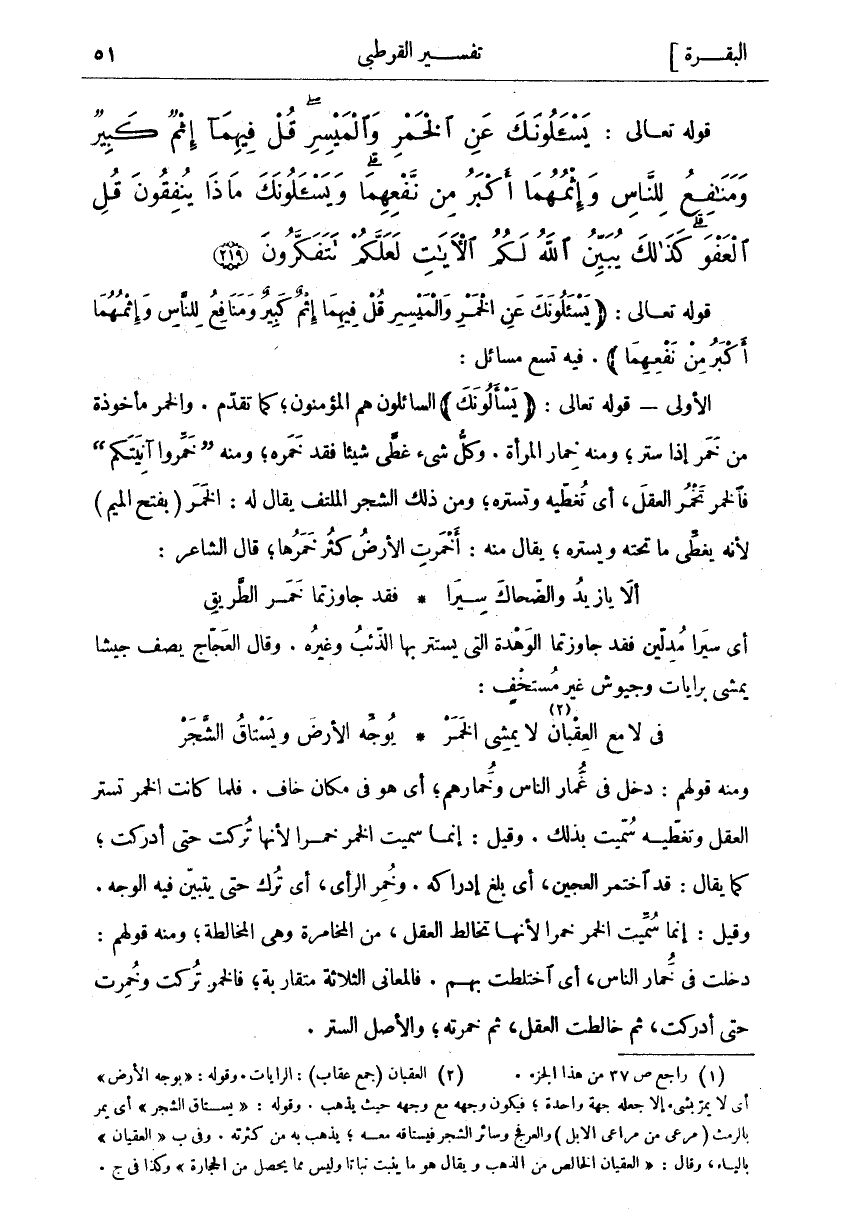 البقـــرة ]
تفســير القرطبى
٥١
قوله تعـالى : يَسْـَٔلُونَكَ عَنِ ٱلْخَمْرِ وَٱلْمَيْسِرِ ۖ قُلْ فِيهِمَآ إِثْمٌ كَبِيرٌ
وَمَنَـٰفِعُ لِلنَّاسِ وَإِثْمُهُمَآ أَكْبَرُ مِن نَّفْعِهِمَا ۗ وَيَسْـَٔلُونَكَ مَاذَا يُنفِقُونَ قُلِ
ٱلْعَفْوَ ۗ كَذَٰلِكَ يُبَيِّنُ ٱللَّهُ لَكُمُ ٱلْأَيَـٰتِ لَعَلَّكُمْ تَتَفَكَّرُونَ ﴿٢١٩﴾
قوله تعـالى : ﴿ يَسْئَلُونَكَ عَنِ الْخَمْرِ وَالْمَيْسِرِ قُلْ فِيهِمَا إِثْمٌ كَبِيرٌ وَمَنَافِعُ لِلنَّاسِ وَإِثْمُـهُمَا
أَكْبَرُ مِنْ نَفْعِهِمَا ﴾ . فيه تسع مسائل :
الأولى — قوله تعالى : ﴿ يَسْأَلُونَكَ ﴾ السائلون هم المؤمنون؛ كما تقدّم . والخمر مأخوذة
من خَمَر إذا ستر ؛ ومنه خِمار المرأة . وكلُّ شىء غطَّى شيئا فقد خَمَره؛ ومنه ” خَمِّروا آنِيَتَكم “
فٱلخمر تَخْمُر العقلَ، أى تُغطّيه وتستره؛ ومن ذلك الشجر الملتف يقال له : الخَمَر ( بفتح الميم )
لأنه يغطِّى ما تحته ويستره ؛ يقال منه : أَخْمَرتِ الأرضُ كثُر خَمَرُها؛ قال الشاعر :
ألَا يازيدُ والضّحاكَ سِـيرَا * فقد جاوزتما خَمَـر الطَّريقِ
أى سيرَا مُدِلّين فقد جاوزتما الوَهْدة التى يستتر بها الذّئبُ وغيرُه . وقال العَجّاج يصف جيشا
يمشى برايات وجيوش غير مُستخْفٍ :
فى لامع العِقْبان (٢) لا يمشِى الخَمَرْ * يُوجِّه الأرضَ ويَسْتاقُ الشَّجَرْ
ومنه قولهم : دخل فى غُمار الناس وخُمارهم؛ أى هو فى مكان خاف . فلما كانت الخمر تستر
العقل وتغطّيــه سُمّيت بذلك . وقيل : إنمـا سميت الخمر خمـرا لأنها تُركت حتى أدركت ؛
كما يقال : قد ٱختمر العجين، أى بلغ إدراكه . وخُمِر الرأى، أى تُرك حتى يتبيّن فيه الوجه .
وقيل : إنما سُمِّيت الخمر خمرا لأنهـا تخالط العقل ، من المخامرة وهى المخالطة؛ ومنه قولهم :
دخلت فى خُمار الناس، أى ٱختلطت بهـم . فالمعانى الثلاثة متقاربة؛ فالخمر تُركت وخُمِرت
حتى أدركت، ثم خالطت العقل، ثم خمرته ؛ والأصل الستر .
(١) راجع ص ٣٧ من هذا الجزء . (٢) العقبان (جمع عقاب) : الرايات . وقوله : «يوجه الأرض»
أى لا يمرّ بشىء إلا جعله جهة واحدة ؛ فيكون وجهه مع وجهه حيث يذهب . وقوله : « يســتاق الشجر » أى يمر
بالرمث ( مرعى من مراعى الابل ) والعرفج وسائر الشجر فيستاقه معـه ؛ يذهب به من كثرته . وفى ب « العقيان »
باليـاء، وقال : « العقيان الخالص من الذهب و يقال هو ما ينبت نباتا وليس مما يحصل من الحجارة » وكذا فى ج .